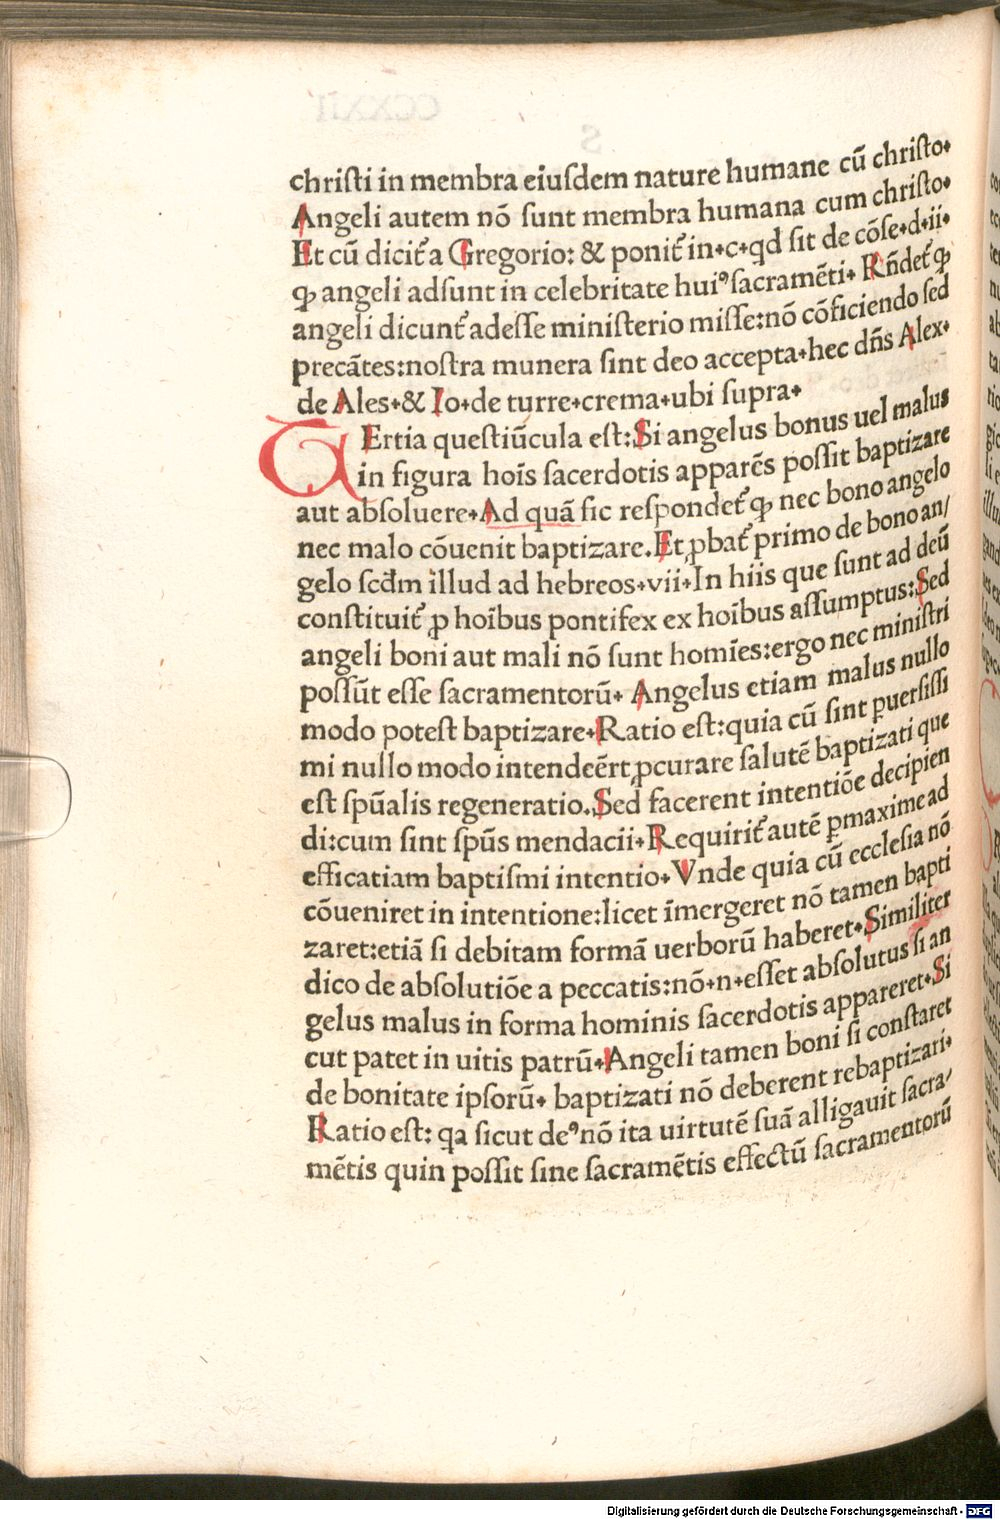 christi in membra eiusdem nature humane cū christo.
Angeli autem nō sunt membra humana cum christo.
Et cū dicit᷑ a Gregorio: & ponit᷑ in.c.qd sit de cōse.d.ii.
ꝙ angeli adsunt in celebritate huiꝰ sacramēti. Rñdet᷑ ꝙ
angeli dicunt᷑ adesse ministerio misse:nō cōficiendo sed
precātes:nostra munera sint deo accepta.hec dñs Alex.
de Ales.& Io.de turre.crema.ubi supra.
TErtia questiūcula est:Si angelus bonus uel malus
in figura hoīs sacerdotis apparēs possit baptizare
aut absoluere.Ad quā sic respondet᷑ ꝙ nec bono angelo
nec malo cōuenit baptizare.Et ꝓbat᷑ primo de bono an/
gelo scd̄m illud ad hebreos.vii.In hiis que sunt ad deū
constituit᷑ ꝓ hoībus pontifex ex hoībus assumptus:Sed
angeli boni aut mali nō sunt homīes:ergo nec ministri
possūt esse sacramentorū. Angelus etiam malus nullo
modo potest baptizare.Ratio est:quia cū sint ꝑuersissi
mi nullo modo intendeērt ꝓcurare salutē baptizati que
est spūalis regeneratio.Sed facerent intentiōe decipien
di:cum sint spūs mendacii.Requirit᷑ autē ꝑmaxime ad
efficatiam baptismi intentio.Vnde quia cū ecclesia nō
cōueniret in intentione:licet īmergeret nō tamen bapti
zaret:etiā si debitam formā uerborū haberet.Similiter
dico de absolutiōe a peccatis:nō.n.esset absolutus si an
gelus malus in forma hominis sacerdotis appareret.Si
cut patet in uitis patrū.Angeli tamen boni si constaret
de bonitate ipsorū. baptizati nō deberent rebaptizari.
Ratio est: qa sicut deꝰ nō ita uirtutē suā alligauit sacra/
mētis quin possit sine sacramētis effectū sacramentorū
Digitalisierung gefördert durch die Deutsche Forschungsgemeinschaft - DFG